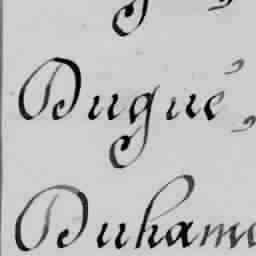 Dugué,
Duham